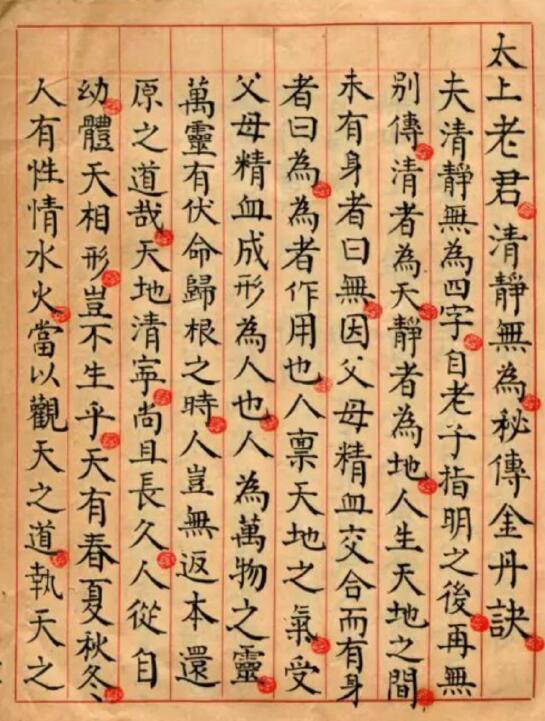 太上老君清靜無為秘傳金丹訣
夫清靜無為四字自老子指明之後再無
別傳清者為天靜者為地人生天地之間
未有身者曰無因父母精血交合而有身
者曰為為者作用也人稟天地之氣受
父母精血成形為人也人為萬物之靈
萬靈有伏命歸根之時人豈無返本還
原之道哉天地清寧尚且長久人從自
幼體天相形豈不生乎天有春夏秋冬
人有性情水火當以觀天之道執天之